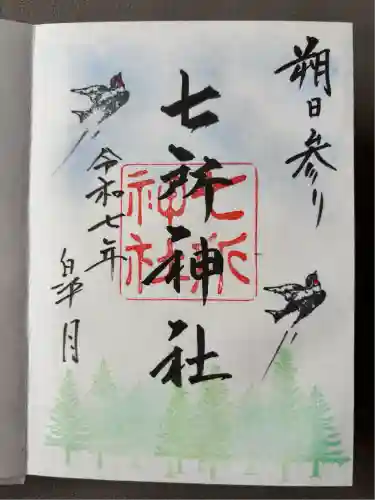 朔日参り
七所神社
七所
神社
令和七年
皐月